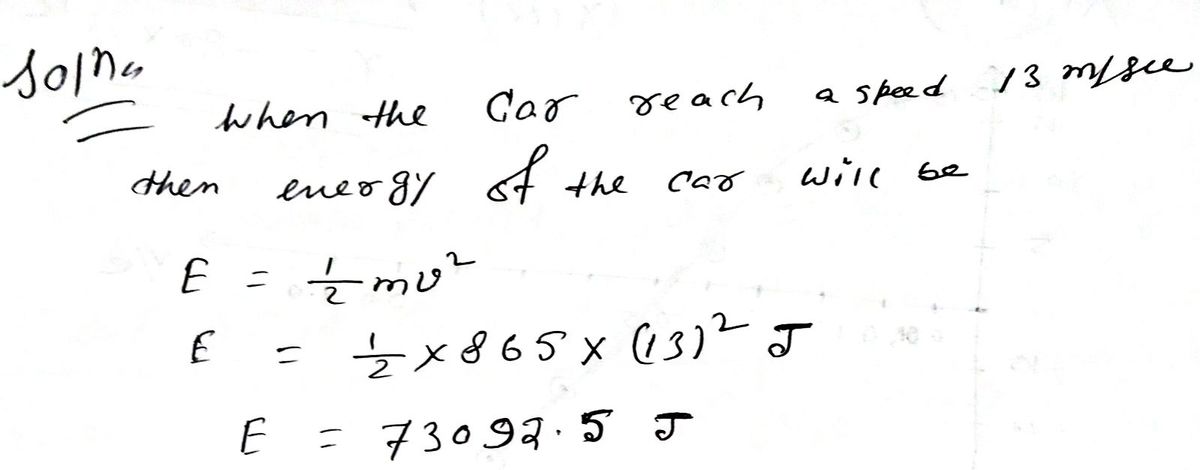 Soln
When the Car reach a speed 13 m/sec
then energy of the car will be
E = 1/2 mv²
E = 1/2 × 865 × (13)² J
E = 73092.5 J